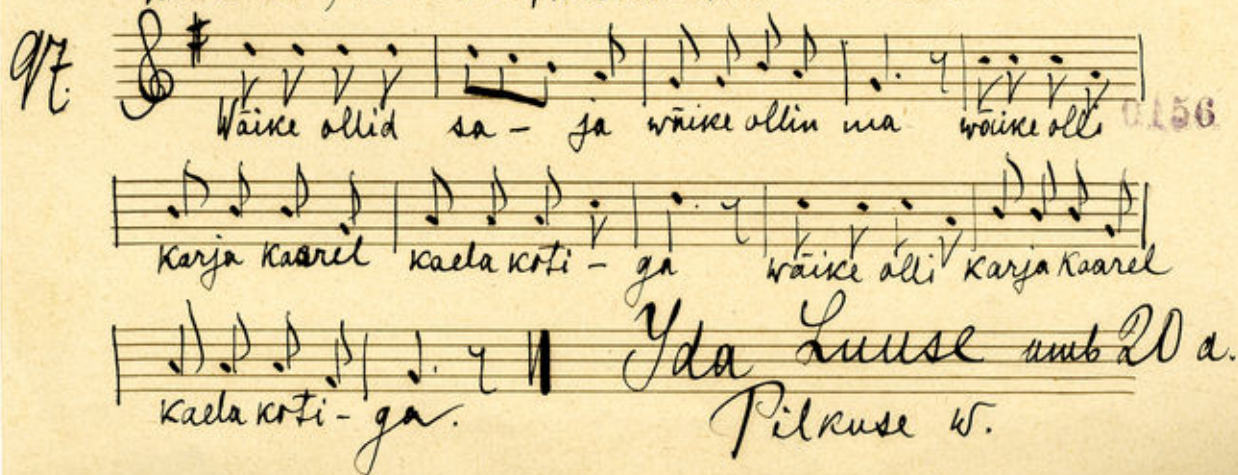 97.
Wäike ollid sa - ja wäike ollin ma wäike olli
0156
karja kaarel kaela koti - ga wäike olli karja kaarel
kaela koti - ga.
Yda Luuse umb 20 a.
Pilkuse w.